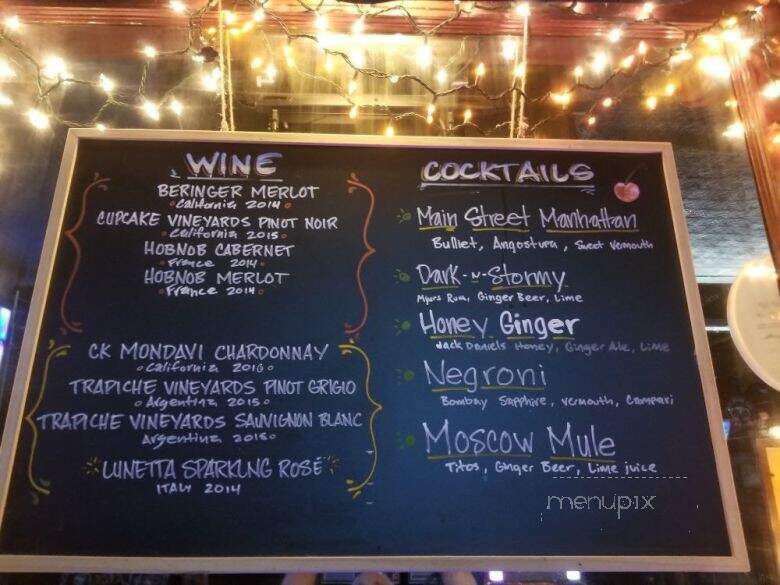 WINE
BERINGER MERLOT
California 2014
CUPCAKE VINEYARDS PINOT NOIR
California 2015
HOBNOB CABERNET
France 2014
HOBNOB MERLOT
France 2014
CK MONDAVI CHARDONNAY
California 2016
TRAPICHE VINEYARDS PINOT GRIGIO
Argentina 2015
TRAPICHE VINEYARDS SAUVIGNON BLANC
Argentina 2015
LUNETTA SPARKLING ROSÉ
ITALY 2014
COCKTAILS
Main Street Manhattan
Bulliet, Angostura, Sweet Vermouth
Dark-N-Stormy
Myers Rum, Ginger Beer, Lime
Honey Ginger
Jack Daniels Honey, Ginger Ale, Lime
Negroni
Bombay Sapphire, Vermouth, Campari
Moscow Mule
Titos, Ginger Beer, Lime juice
menupix